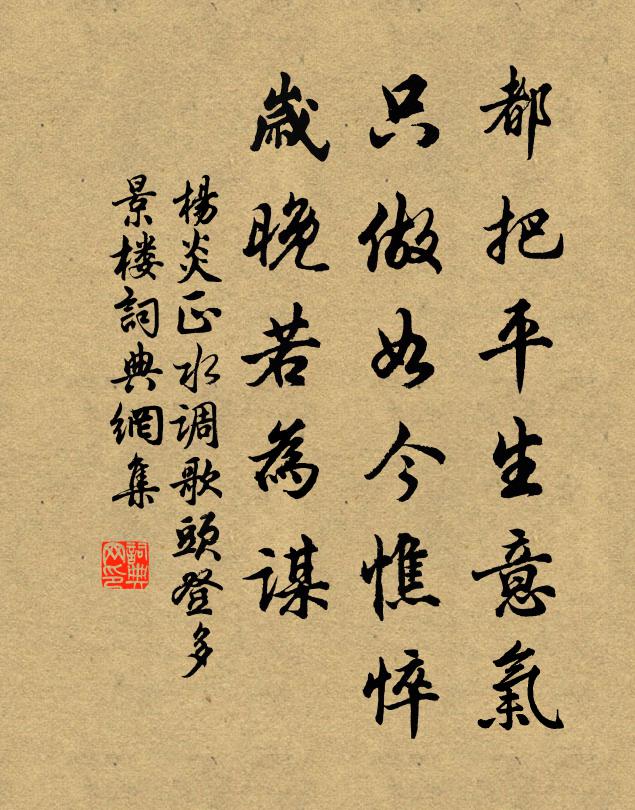 都把平生意氣
只做如今憔悴
歲晚若為謀
楊炎正水调歌頭登多
景楼詞典網集
詞典网印